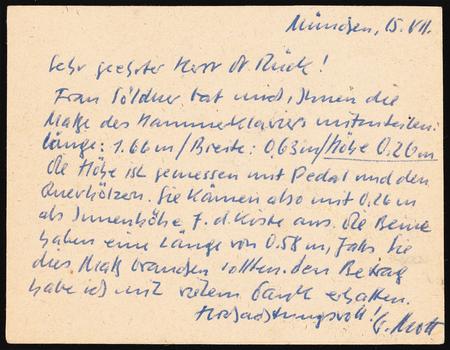 München, 15. VII.
Sehr geehrter Herr Dr. Rück!
Frau Söldner bat mich, Ihnen die
Maße des Hammerklaviers mitzuteilen:
Länge: 1.66 m / Breite: 0,63 m / Höhe 0.26 m
Die Höhe ist gemessen mit Pedal und den
Querhölzern. Sie kämen also mit 0.26 m
als Innenhöhe f. d. Kiste aus. Die Beine
haben eine Länge von 0.58 m, falls Sie
dies Maß brauchen sollten. Den Betrag
habe ich mit vielem Dank erhalten.
Hochachtungsvoll!